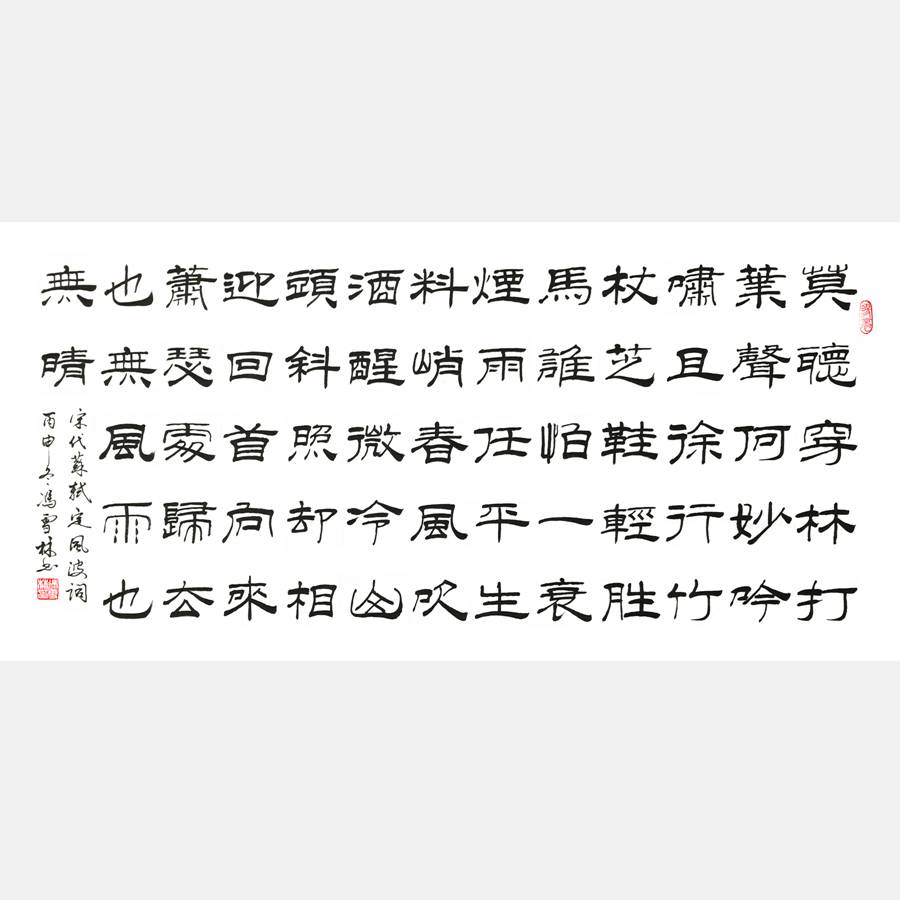 莫聽穿林打
葉聲何妙吟
嘯且徐行竹
杖芝鞋輕胜
馬誰怕一衰
煙雨任平生
料峭春風吹
酒醒微冷山
頭斜照却相
迎回首向來
蕭瑟處歸去
也無風雨也
無晴
宋代蘇軾定風波词
丙申冬馮雪林书